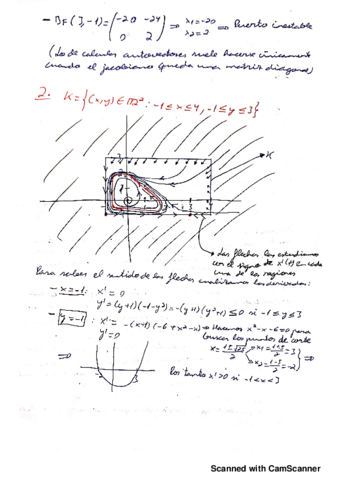 - BF(3,-1) = (-20 -24
0 2) ⇒ λ1=-20
λ2=2 ⇒ Puerto inestable
(Lo de calcular autovectores suele hacerse únicamente
cuando el jacobiano queda una matriz diagonal)
2. K={(x,y)∈ℝ²: -1≤x≤4, -1≤y≤3}
K
Las flechas las estudiamos
con el signo de x'(t) en cada
una de las regiones
Para saber el sentido de las flechas analizamos las derivadas:
- x=-1: x'=0
y'=(y+1)(-1-y²)=-(y+1)(y²+1)≤0 si -1≤y≤3
- y=-1: x'=-(x+1)(-6+x²-x) → Hacemos x²-x-6=0 para
y'=0
buscar los puntos de corte
x=(1±√25)/2 x1=(1+5)/2=3
x2=(1-5)/2=-2 ⇒
⇒
-2 3
Por tanto x'>0 si -1<x<3
Scanned with CamScanner